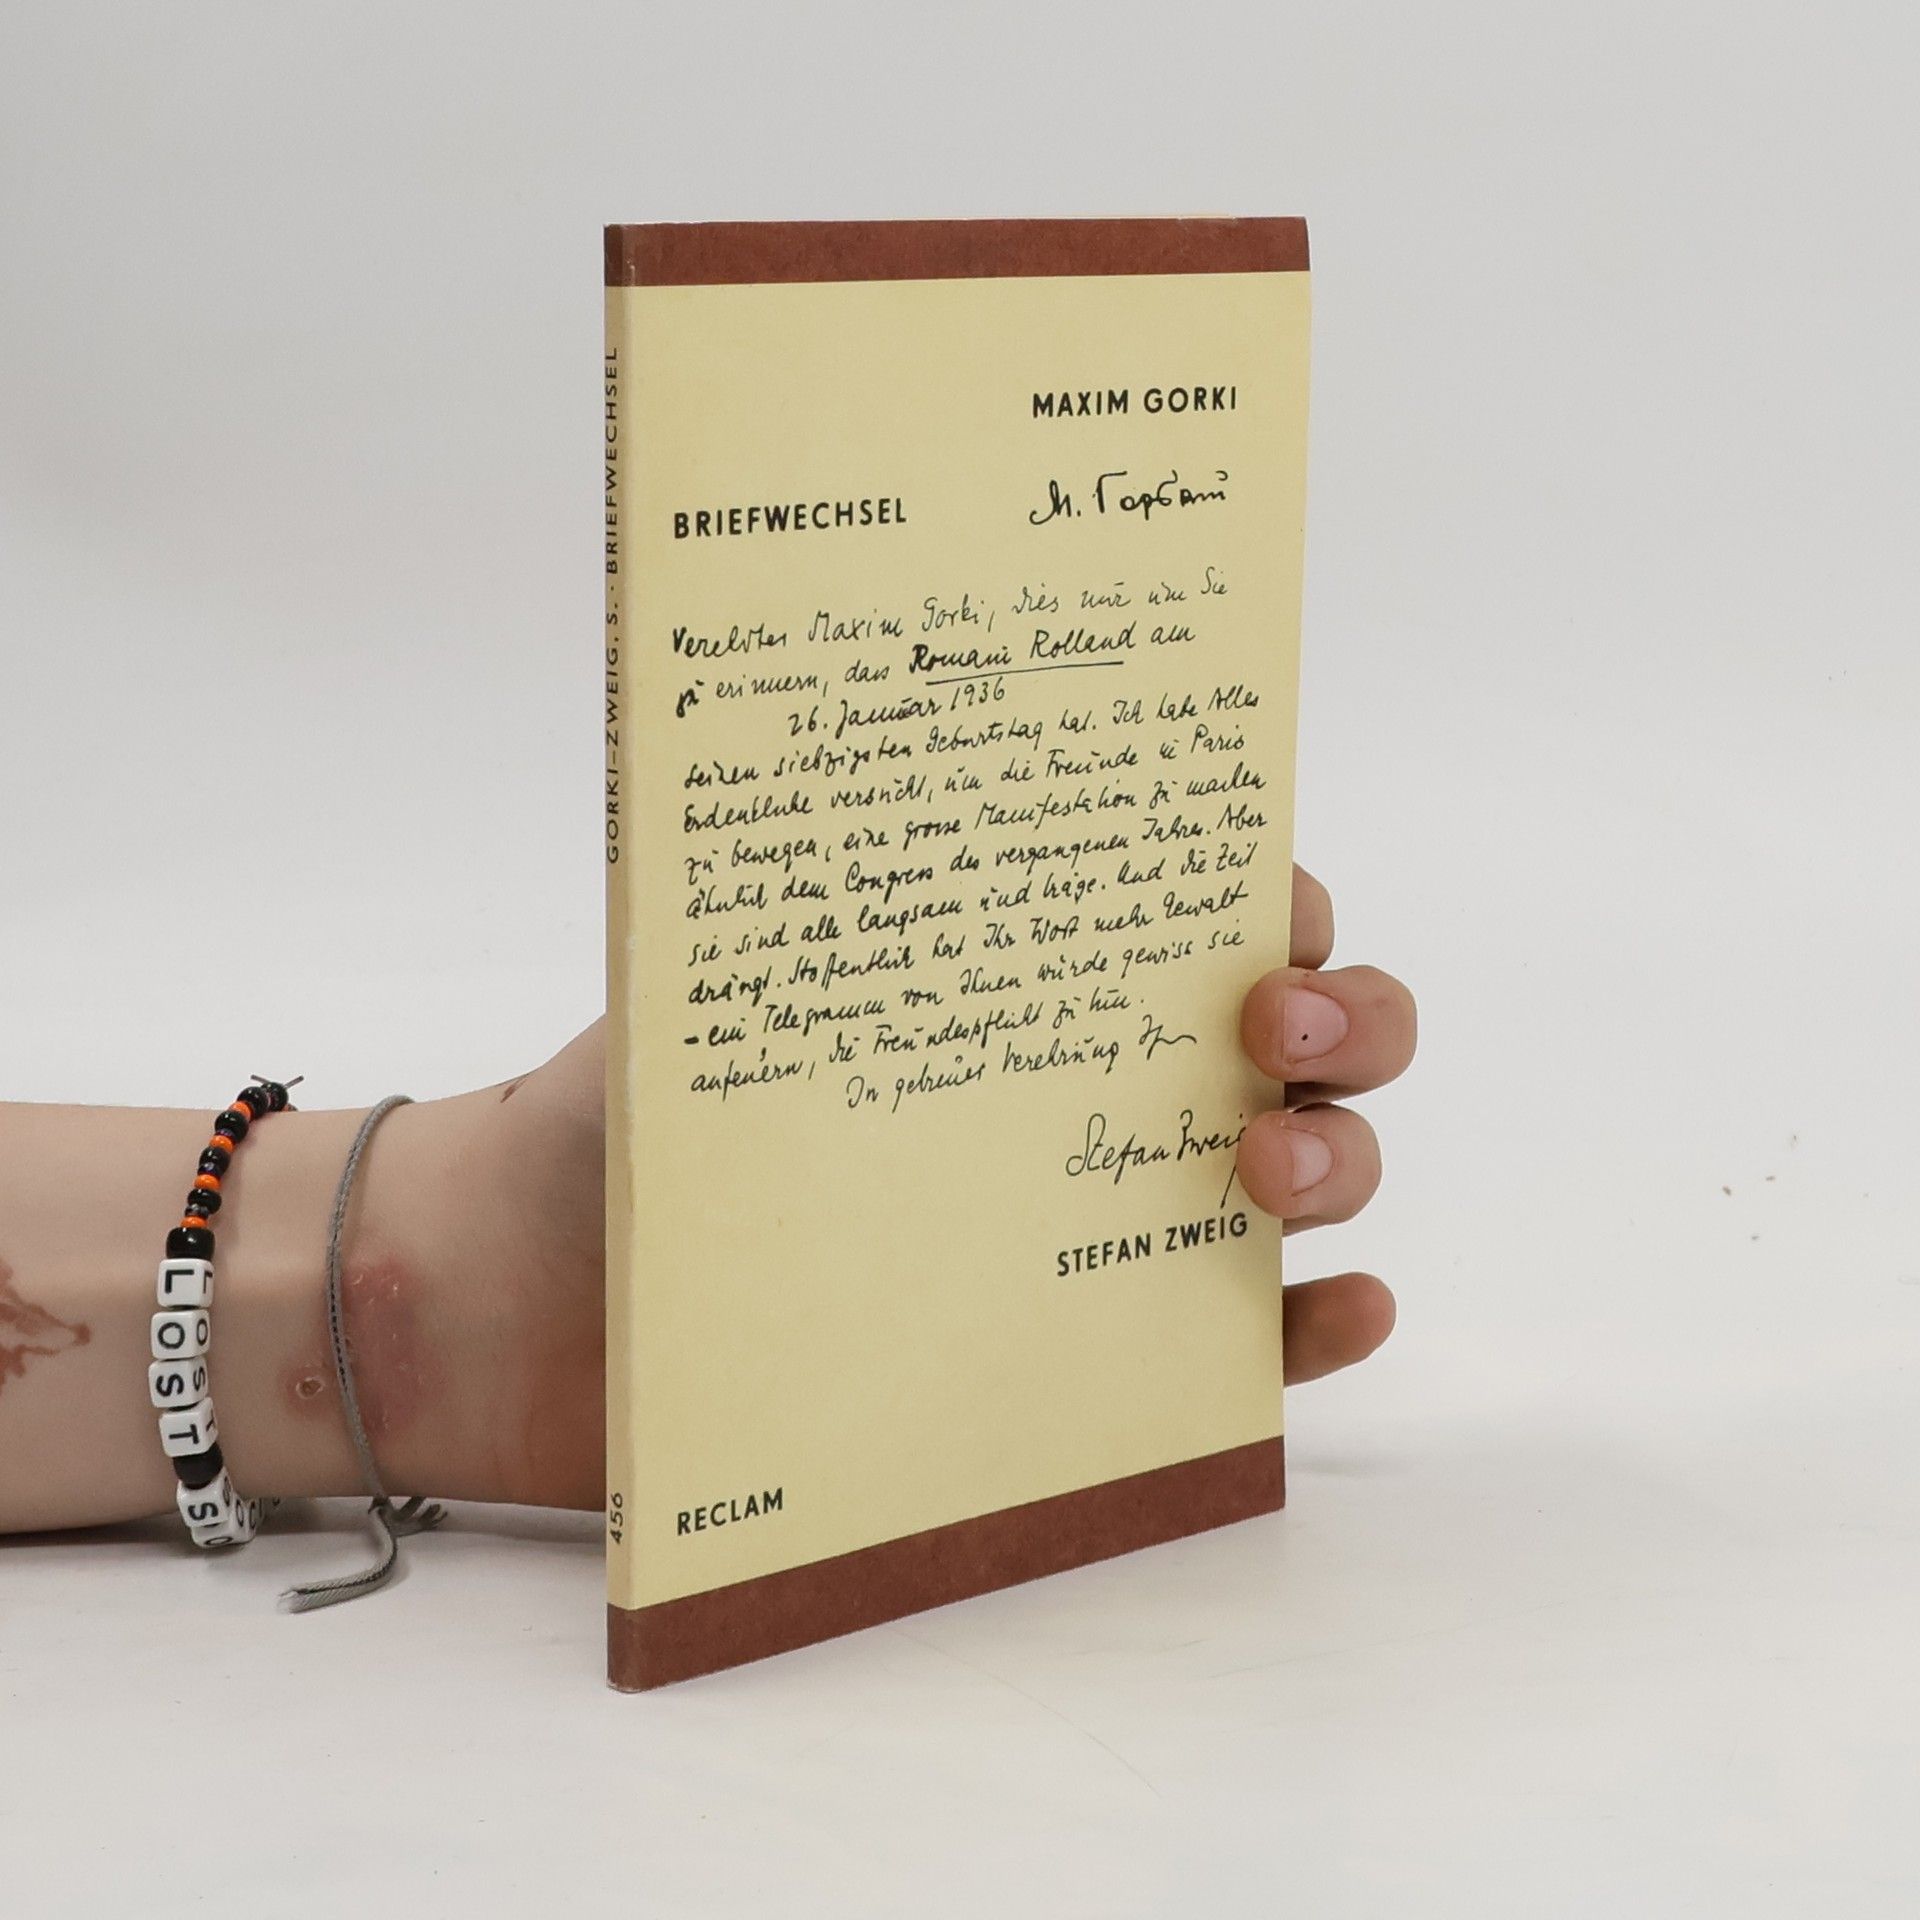 MAXIM GORKI
М. Горький
BRIEFWECHSEL
Verehrter Maxim Gorki, dies nur um Sie
zu erinnern, dass Romain Rolland am
26. Januar 1936
seinen siebzigsten Geburtstag hat. Ich habe Alles
Erdenkliche versucht, um die Freunde in Paris
zu bewegen, eine grosse Manifestation zu machen
ähnlich dem Congress des vergangenen Jahres. Aber
sie sind alle langsam und träge. Und die Zeit
drängt. Hoffentlich hat Ihr Wort mehr Gewalt
– ein Telegramm von Ihnen würde gewiss sie
anfeuern, die Freundespflicht zu tun.
In getreuer Verehrung Ihr
Stefan Zweig
STEFAN ZWEIG
RECLAM
GORKI–ZWEIG, S. · BRIEFWECHSEL
456
LOST
SO